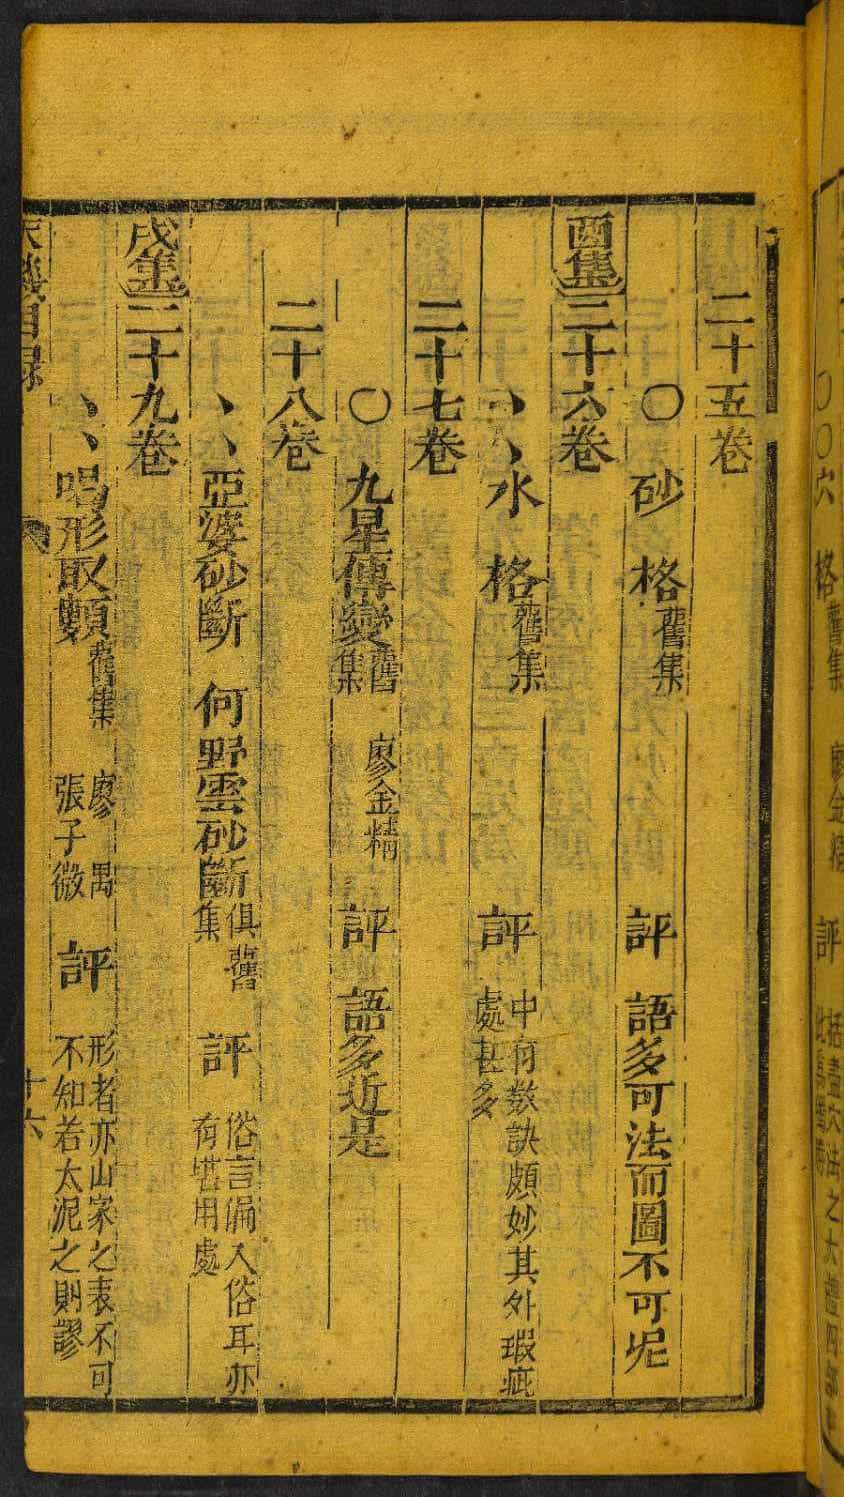 二十五卷
○ 砂 格 舊集 評 語多可法而圖不可泥
酉集 二十六卷
、、水 格 舊集 評 中有数訣頗妙其外瑕疵處甚多
二十七卷
○ 九星傳變 舊集 廖金精 評 語多近是
二十八卷
、、亞婆砂斷 何野雲砂斷 俱舊集 評 俗言滿人俗耳亦有堪用處
戌集 二十九卷
、、喝形取𩔖 舊集 廖禺 張子微 評 形者亦山家之表不可不知若太泥之則謬
天機目録 十六